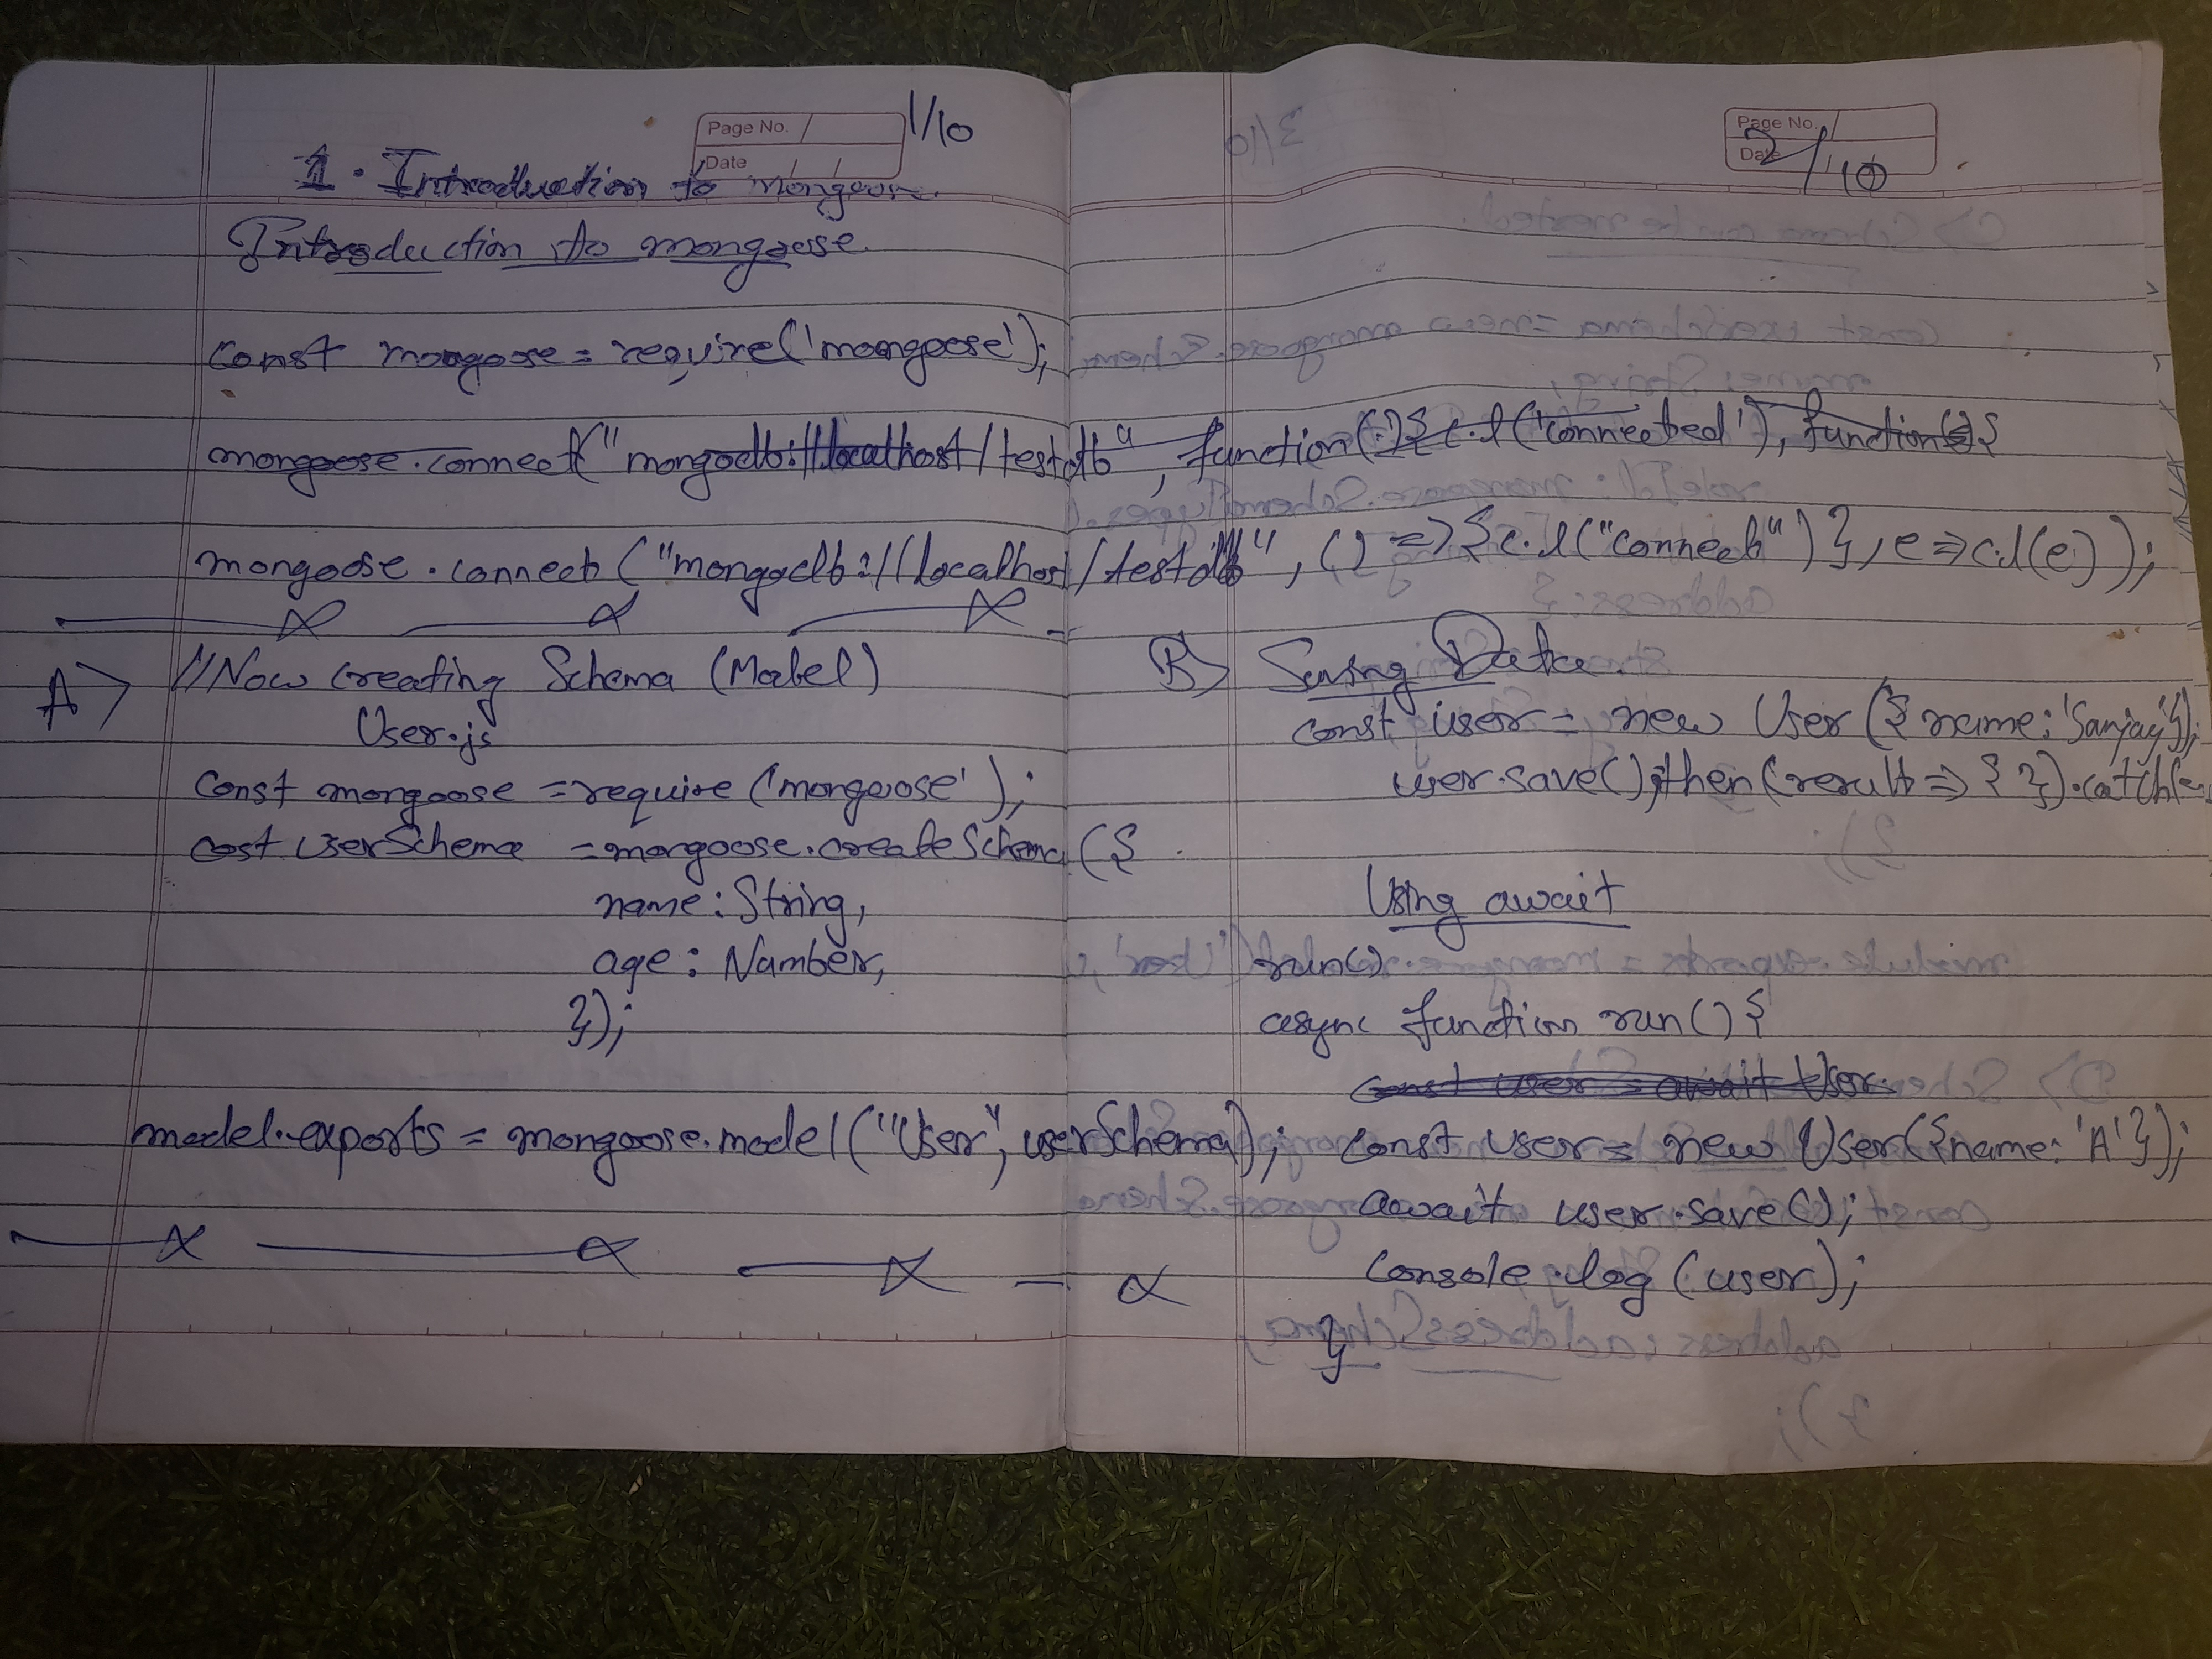 Page No.
Date
1/10
1. Introduction to mongoose.
Introduction to mongoose.
const mongoose = require('mongoose');
mongoose.connect("mongodb://localhost/testdb", function(){c.l('connected'), function(e){
mongoose.connect("mongodb://localhost/testdb", () => {c.l("connect")}, e => c.l(e));
A> //Now Creating Schema (Model)
User.js
const mongoose = require('mongoose');
cost userSchema = mongoose.createSchema({
name: String,
age: Number,
});
model.exports = mongoose.model("User", userSchema);
Page No.
Date
2/10
B> Saving Data.
const user = new User({name: 'Sanjay'});
user.save().then(result => { }).catch(e
Using await
run()
async function run(){
const user = await User.
const user = new User({name: 'A'});
await user.save();
console.log(user);
}